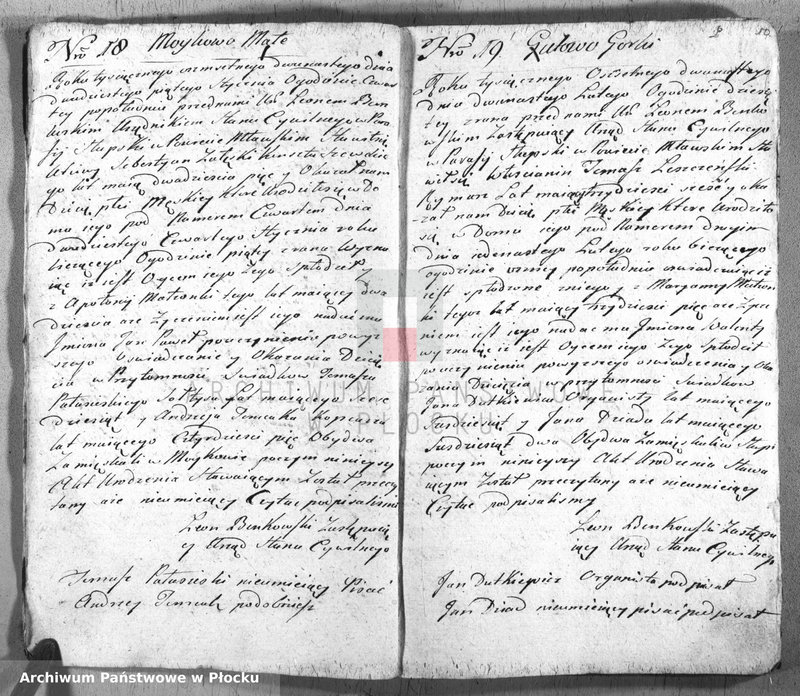 Nro 18 Moykowo Małe
Roku tysiącznego osmsetnego dwunastego dnia
dwudziestego piątego Stycznia o godzinie czwar
tey popołudniu przednami Leonem Ben
kowskim Urzędnikiem Stanu Cywilnego w Para
fij Słupski w Powiecie Mławskim Stawił się
Sebestyan Załeski
go lat maią dwadzieścia pięć y okazał nam
Dziecię płci Męskiey które urodziło się w Do
mu iego pod Numerem Czwartem dnia
dwudziestego Czwartego Stycznia roku
bieżącego o godzinie piątey zrana wyzna
iąc iż iest Oycem iego y ze spłodzeł
z Apolonij Małżonki iego lat maiącey dwa
dzieścia a że życzeniem iest iego nadać mu
Imiona Jan Paweł po uczynieniu powyż
szego oświadczenia y okazania Dzieci
cia w Przytomności Świadków Tomasza
Patasieskiego Sołtysa lat maiącego sześć
dziesiąt y Andrzeia
lat maiącego czterdzieści pięć Obydwa
Zamięszkali w Moykowie poczym ninieyszy
Akt Urodzenia Stawaiącym został przeczy
tany a że nieumieiący Czytać podpisaliśmy
Leon Benkowski Zastępuią
cy Urząd Stanu Cywilnego
Tomasz Patasieski nieumieiący Pisać
Andrzey podobnież
Nro 19 Gutowo Gorki
Roku tysiącznego Osmsetnego dwunastego
dnia dwunastego Lutego o godzinie dziesią
tey zrana przed nami Leonem Benko
wskim Zastępuiący Urząd Stanu Cywilnego
w Parafij Słupski w Powiecie Mławskim sta
wił się Włościanin Tomasz Leszczeński
Rymarz Lat maiący trzydzieści sześć y oka
zał nam Dziecię płci Męskiey które urodziło
się w Domu iego pod Numerem drugim
dnia iedenastego Lutego roku bieżącego
o godzinie osmey popołudniu oświadczaiąc iż
iest spłodzone z niego y z Maryanny Małżon
ki tegoż lat maiący trzydzieści pięć a że życze
niem iest iego nadać ma Imiona Walenty
wyznaiąc iż iest Oycem iego y że spłodził
po uczynieniu powyższego oświadczenia y oka
zania Dziecięcia w przytomności Świadków
Jan Dutkiewicz Organisty lat maiącego
y Jana Dziada lat maiącego
dwa Obydwa Zamięszkali w Słupi
poczym ninieyszy Akt Urodzenia Stawa
iącym został przeczytany a że nieumieiący
Czytać podpisaliśmy
Leon Benkowski Zastępu
iący Urząd Stanu Cywilnego
Jan Dutkiewicz Organista podpisał
Jan Dziad nieumieiący pisać podpisał
ARCHIWUM PAŃSTWOWE
W PŁOCKU
Archiwum Państwowe w Płocku